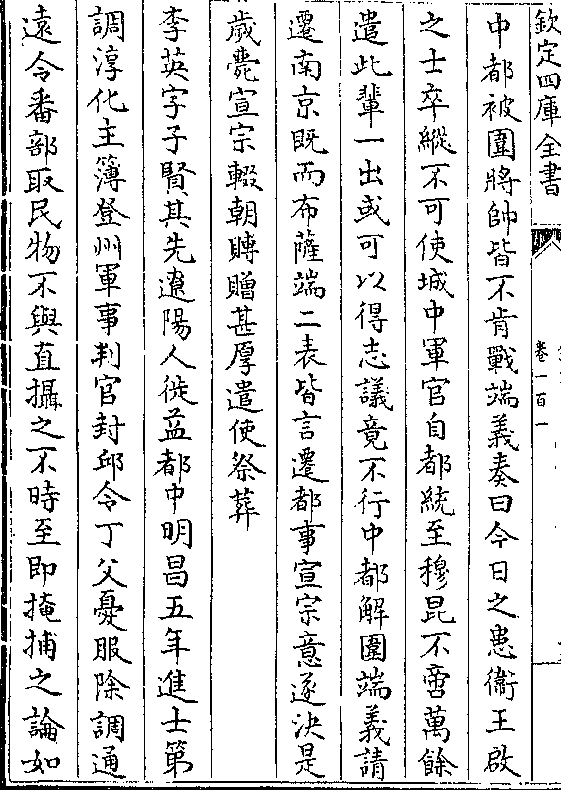 欽定四庫全書
卷一百一
中都被圍將帥皆不肯戰端義奏曰今日之患衛王啟
之士卒縱不可使城中軍官自都統至穆昆不啻萬餘
遣此輩一出或可以得志議竟不行中都解圍端義請
遷南京既而布薩端二表皆言遷都事宣宗意遂決是
歲薨宣宗輟朝賻贈甚厚遣使祭葬
李英字子賢其先遼陽人徙益都中明昌五年進士第
調淳化主簿登州軍事判官封邱令丁父憂服除調通
遠令番部取民物不與直攝之不時至即掩捕之論如